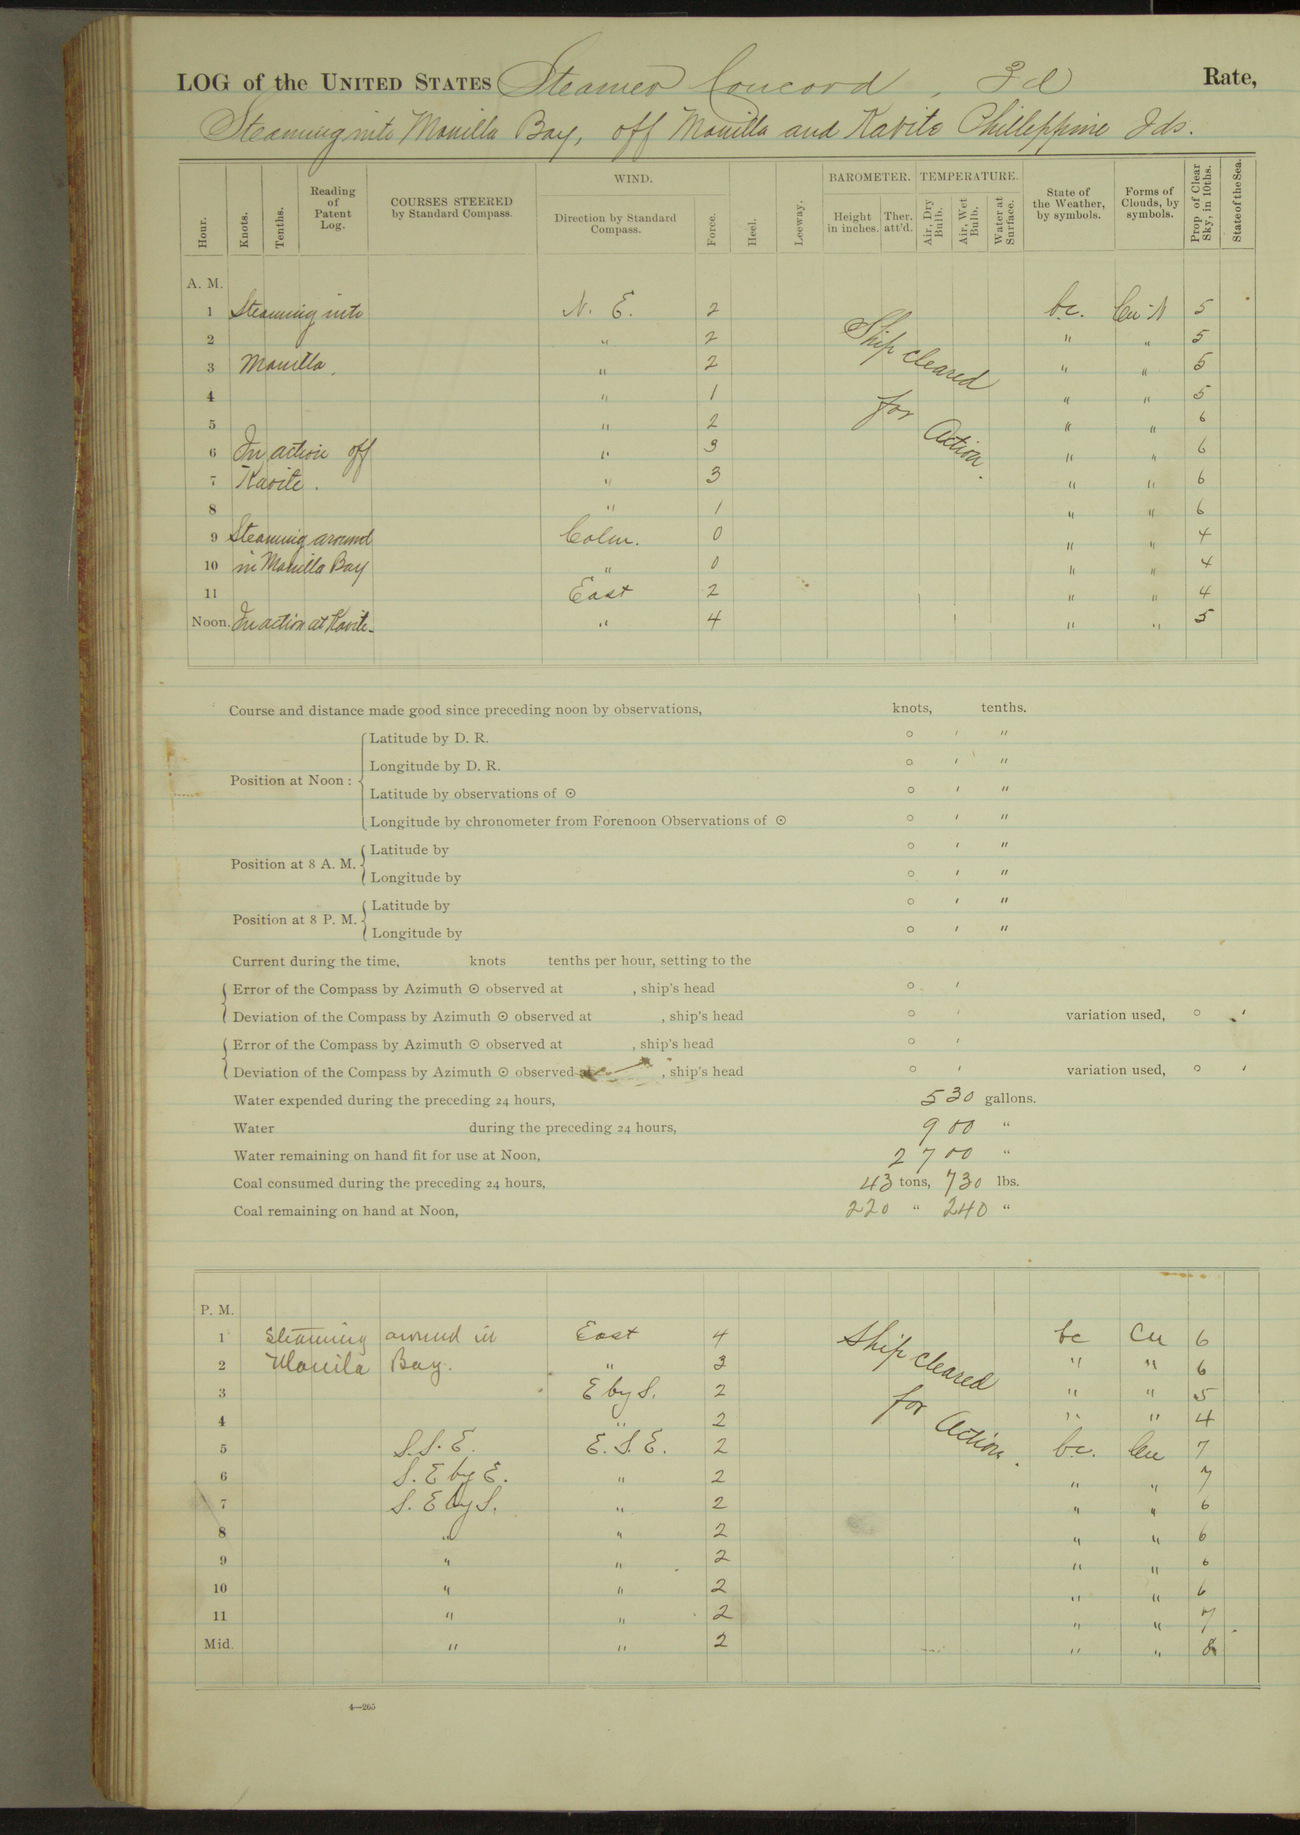 LOG of the UNITED STATES Steamer Concord, 3d Rate,
Steaming into Manilla Bay, off Manilla and Kavite Phillippine Ids.
Hour. Knots. Tenths. Reading of Patent Log. COURSES STEERED by Standard Compass. WIND. Direction by Standard Compass. Force. Heel. Leeway. BAROMETER. Height in inches. Ther. att'd. TEMPERATURE. Air, Dry Bulb. Air, Wet Bulb. Water at Surface. State of the Weather, by symbols. Forms of Clouds, by symbols. Prop of Clear Sky, in 10ths. State of the Sea.
A. M.
1 Steaming into N. E. 2 bc. Cu-N 5
2 " 2 " " 5
3 Manilla. " 2 " " 5
4 " 1 " " 5
5 " 2 " " 6
6 In action off " 3 " " 6
7 Kavite. " 3 " " 6
8 " 1 " " 6
9 Steaming around Calm. 0 " " 4
10 in Manilla Bay " 0 " " 4
11 East 2 " " 4
Noon. In action at Kavite. " 4 " " 5
Ship cleared
for Action.
Course and distance made good since preceding noon by observations, knots, tenths.
Position at Noon :
Latitude by D. R. ° ′ ″
Longitude by D. R. ° ′ ″
Latitude by observations of ⊙ ° ′ ″
Longitude by chronometer from Forenoon Observations of ⊙ ° ′ ″
Position at 8 A. M.
Latitude by ° ′ ″
Longitude by ° ′ ″
Position at 8 P. M.
Latitude by ° ′ ″
Longitude by ° ′ ″
Current during the time, knots tenths per hour, setting to the
Error of the Compass by Azimuth ⊙ observed at , ship's head ° ′
Deviation of the Compass by Azimuth ⊙ observed at , ship's head ° ′ variation used, ° ′
Error of the Compass by Azimuth ⊙ observed at , ship's head ° ′
Deviation of the Compass by Azimuth ⊙ observed at , ship's head ° ′ variation used, ° ′
Water expended during the preceding 24 hours, 530 gallons.
Water during the preceding 24 hours, 900 "
Water remaining on hand fit for use at Noon, 2700 "
Coal consumed during the preceding 24 hours, 43 tons, 730 lbs.
Coal remaining on hand at Noon, 220 " 240 "
P. M.
1 Steaming around in East 4 bc Cu 6
2 Manila Bay. " 3 " " 6
3 E by S. 2 " " 5
4 " 2 " " 4
5 S.S.E. E.S.E. 2 bc. Cu 7
6 S. E by E. " 2 " " 7
7 S. E by S. " 2 " " 6
8 " " 2 " " 6
9 " " 2 " " 6
10 " " 2 " " 6
11 " " 2 " " 7
Mid. " " 2 " " 8
Ship cleared
for Action.
4—265